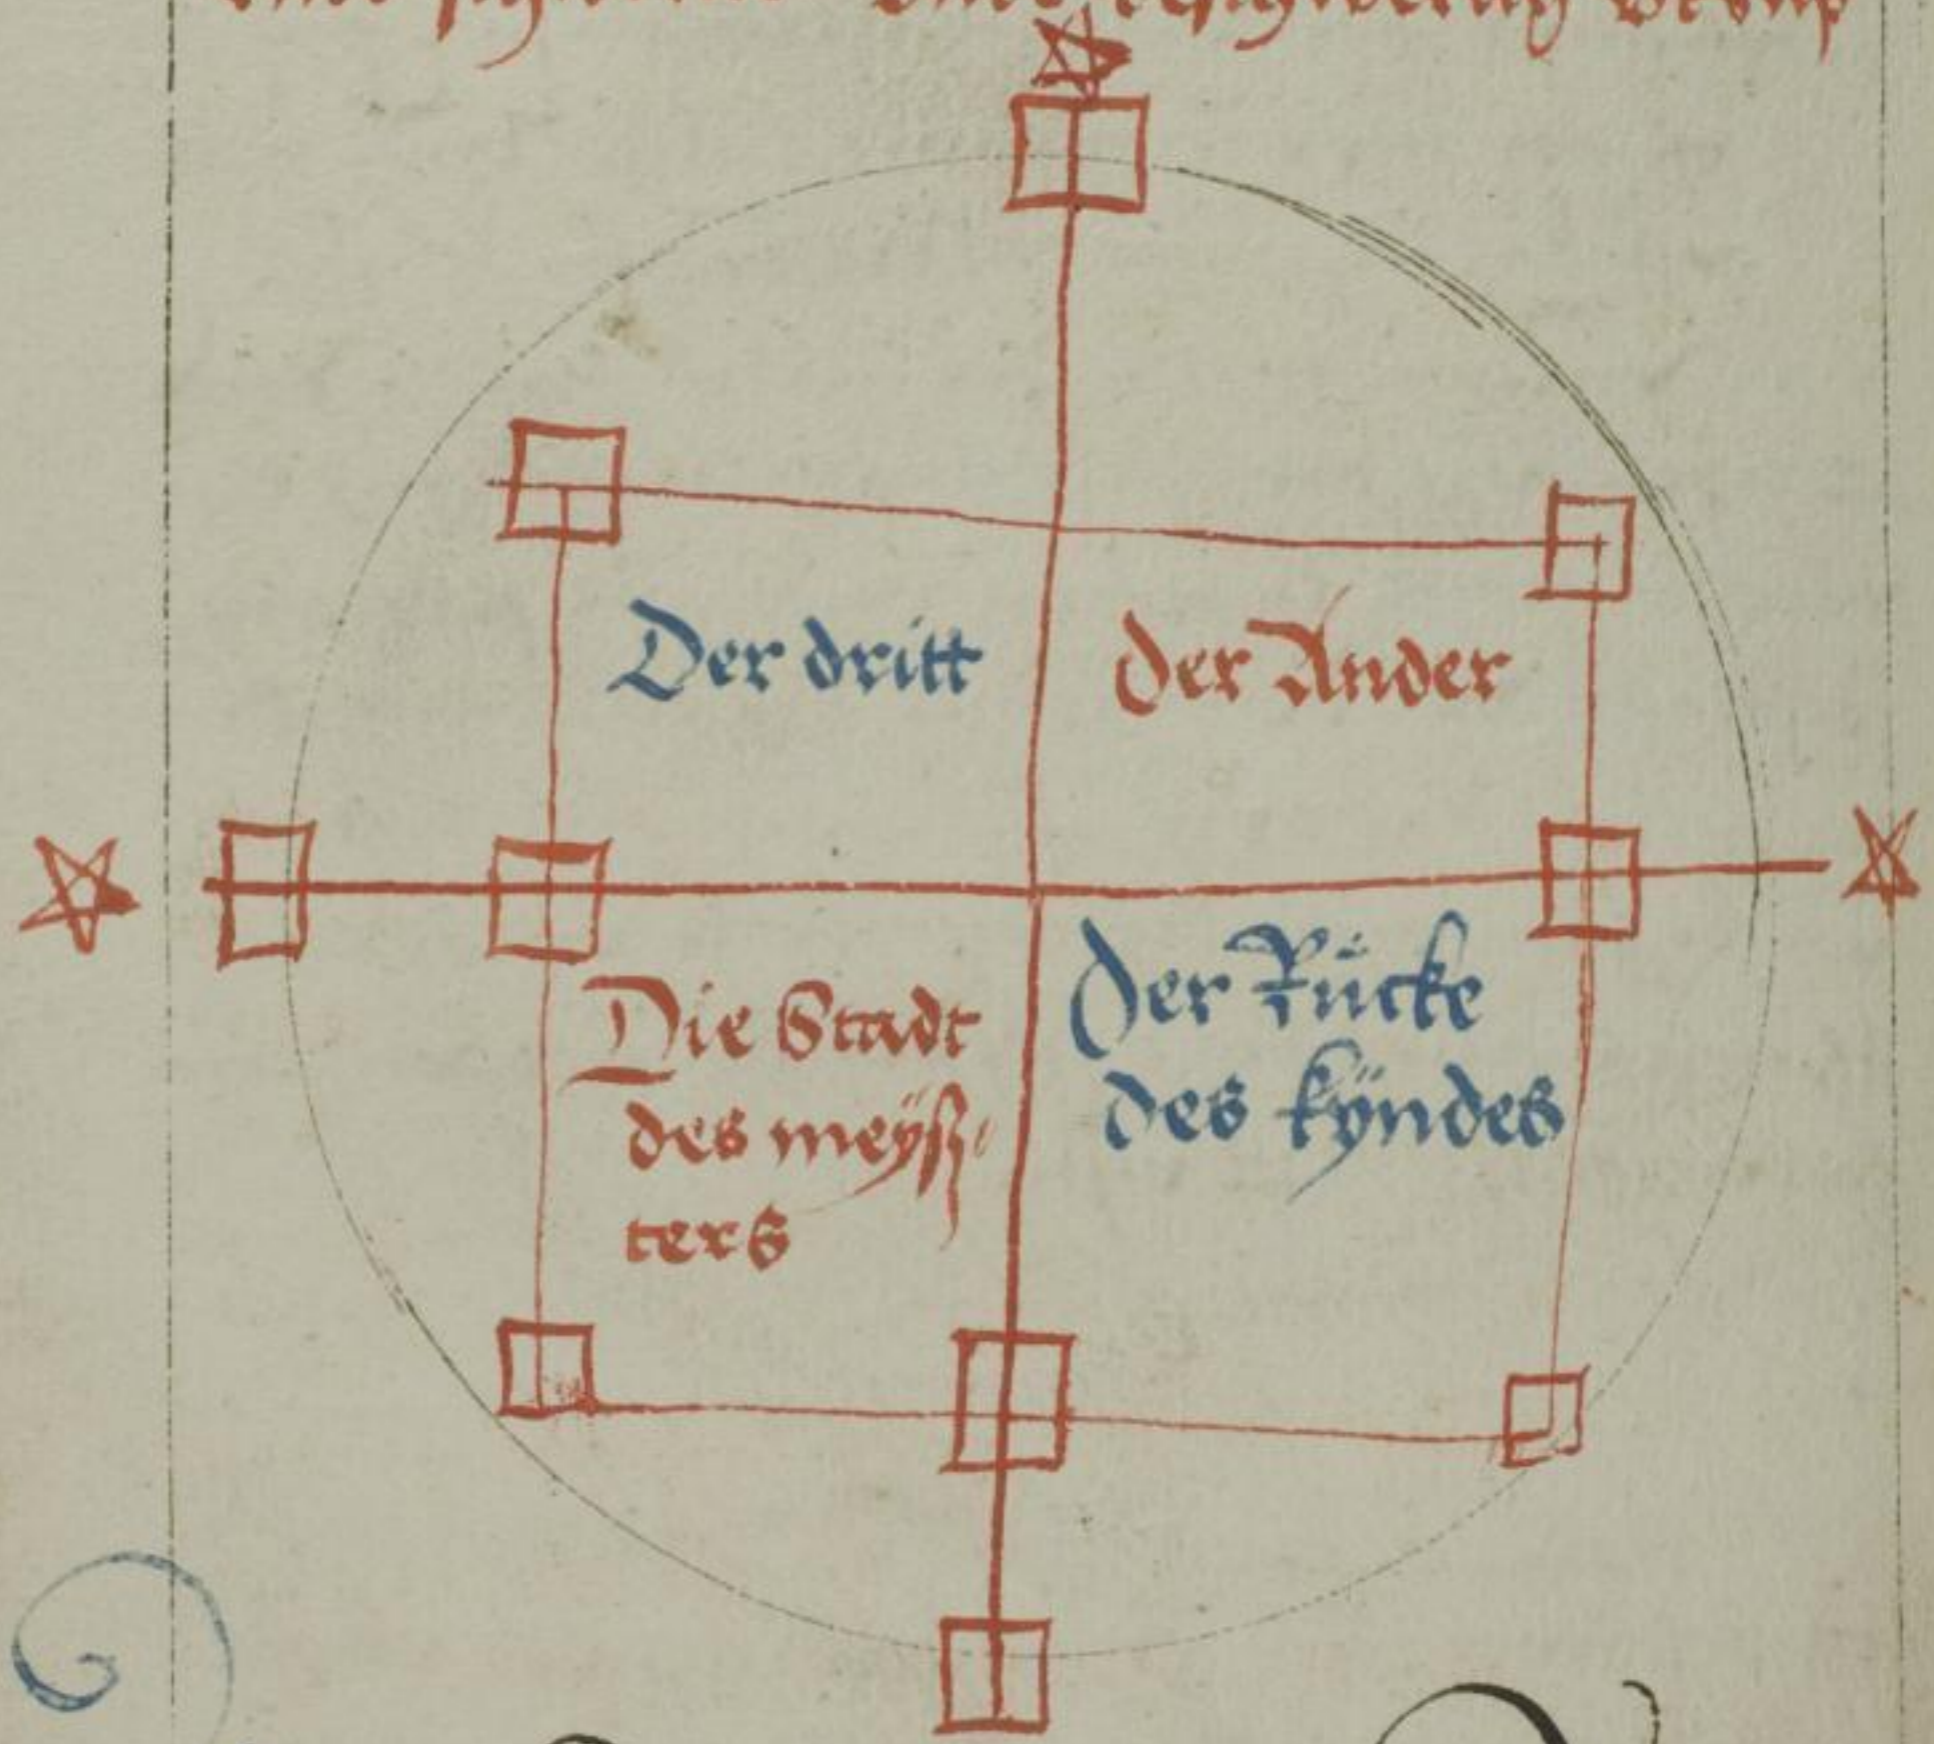 Der dritt
der Ander
Die Stadt
des meÿsz-
ters
Der Rücke
des kÿndes